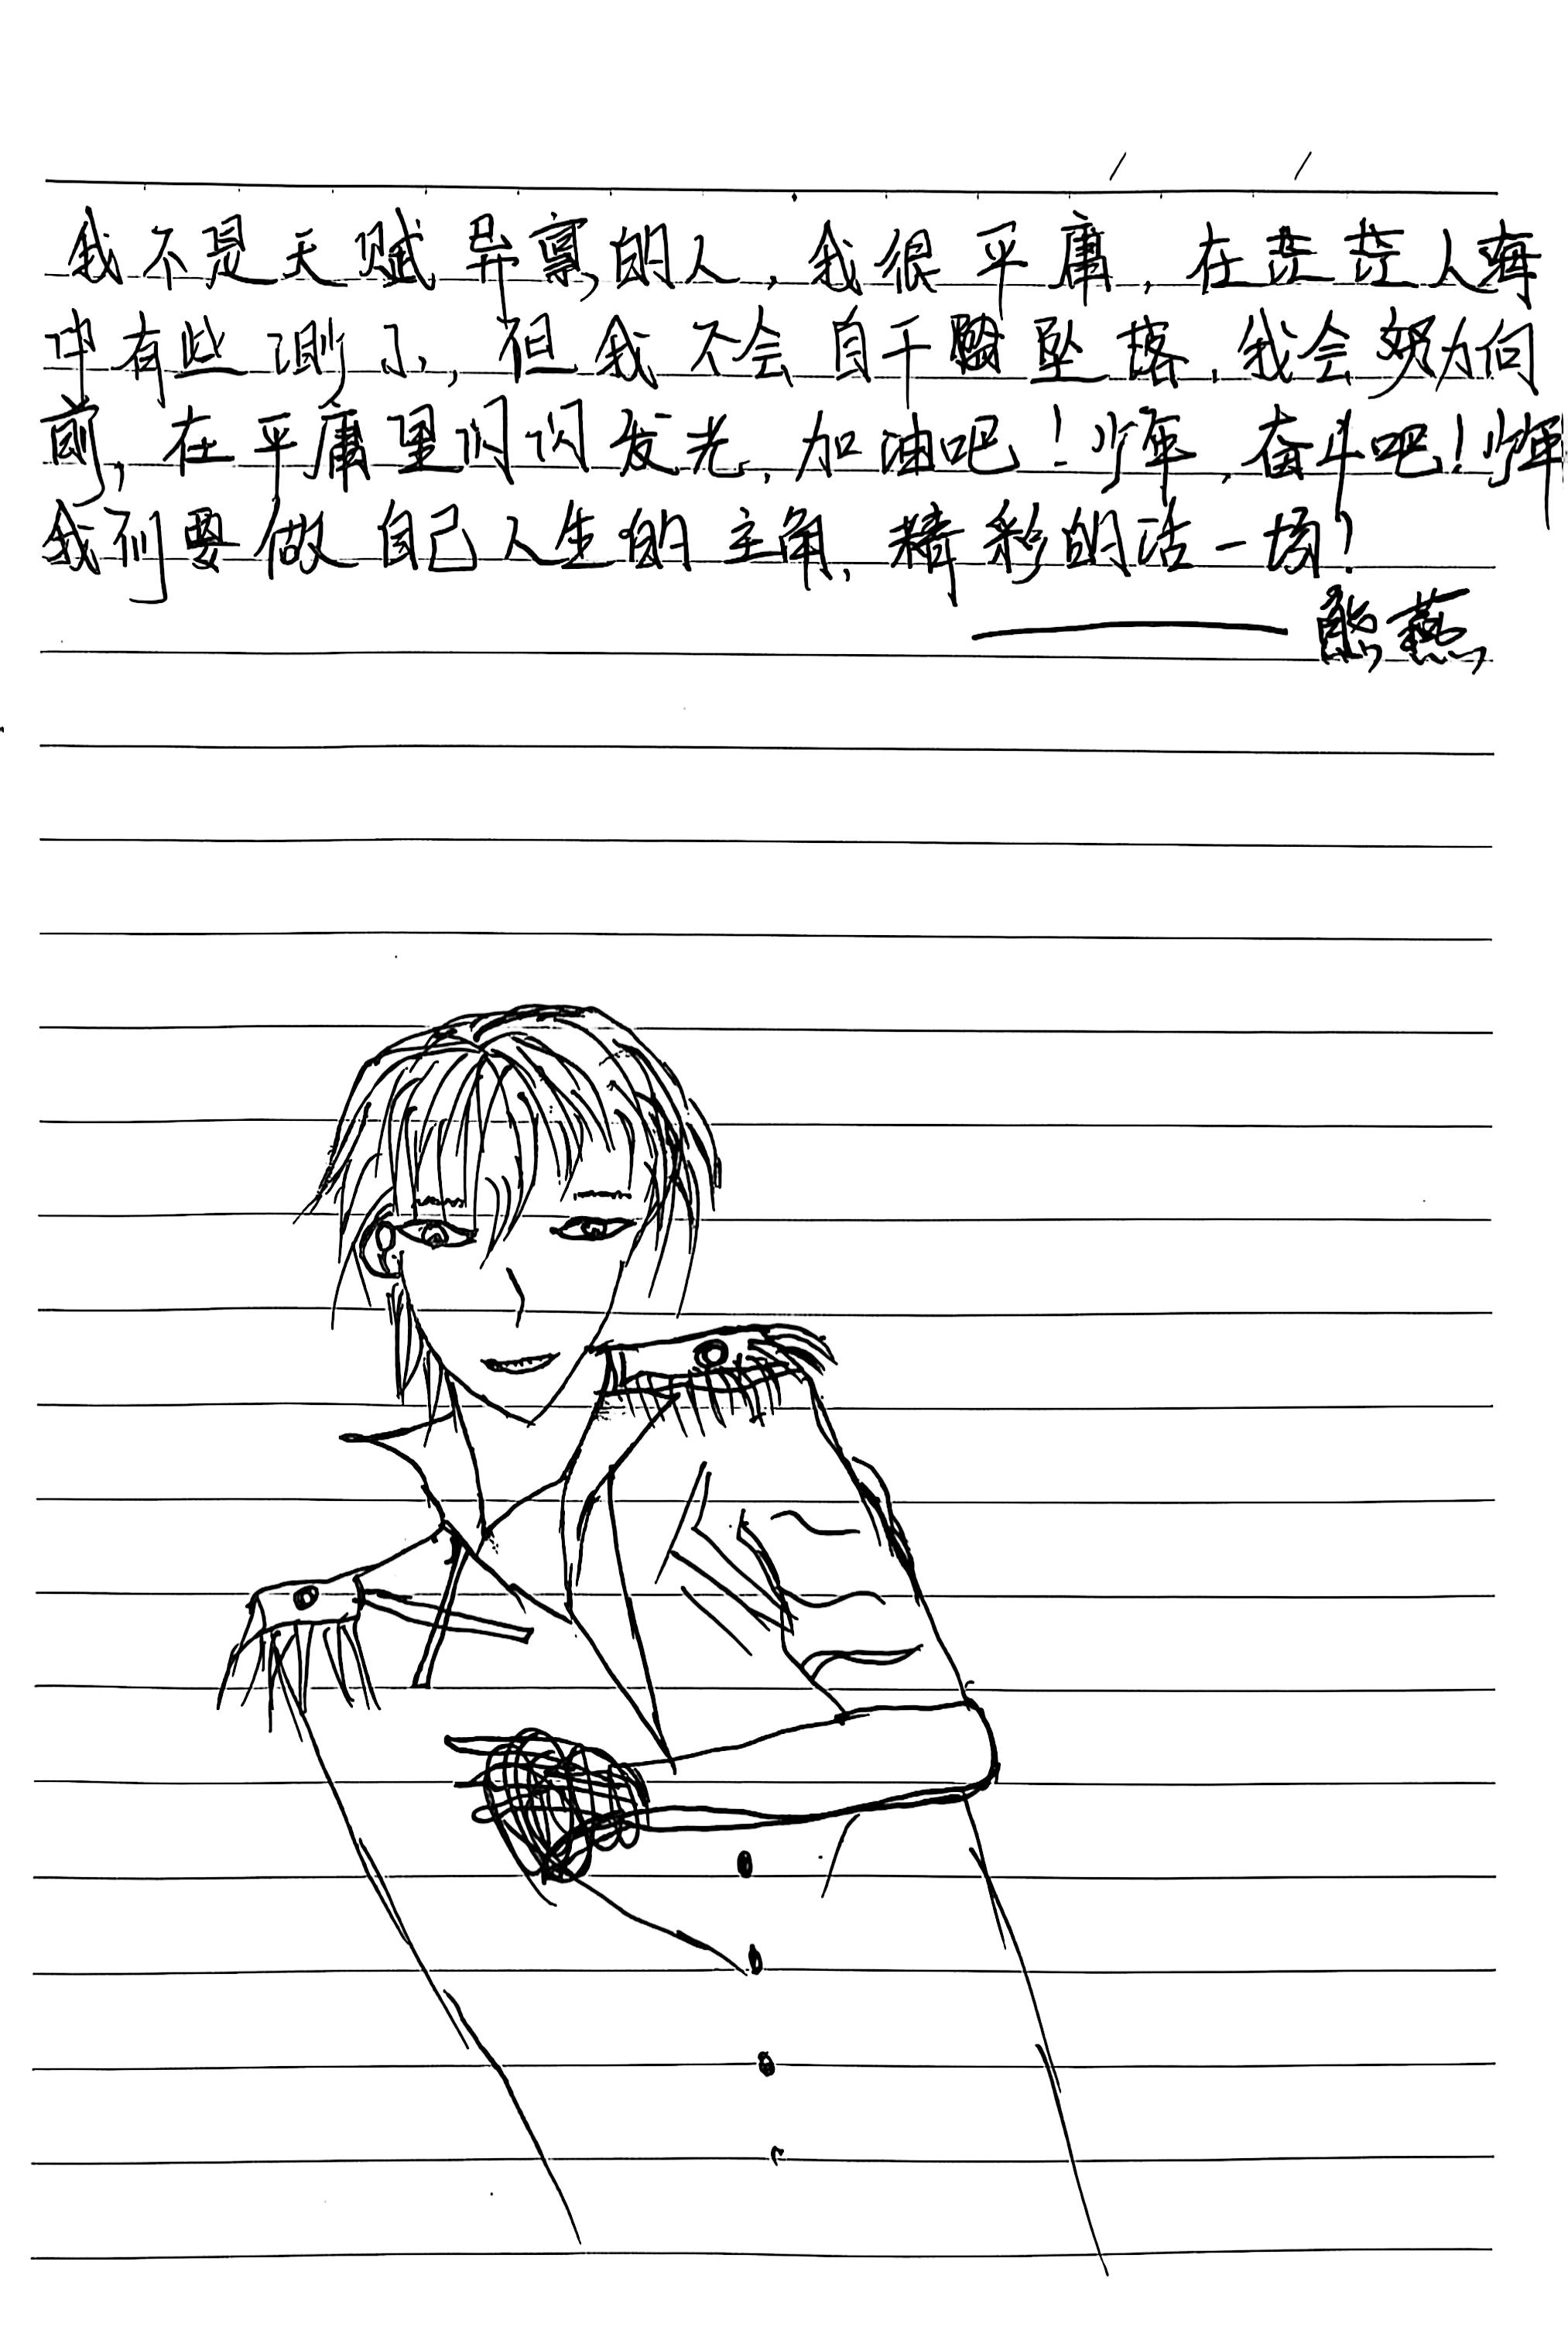 我不是天赋异禀的人，我很平庸，在茫茫人海
中有些渺小，但我不会自干坠落，我会努力向
前，在平庸里闪闪发光，加油吧！少年，奋斗吧！少年
我们要做自己人生的主角，精彩的活一场！
——熊燕